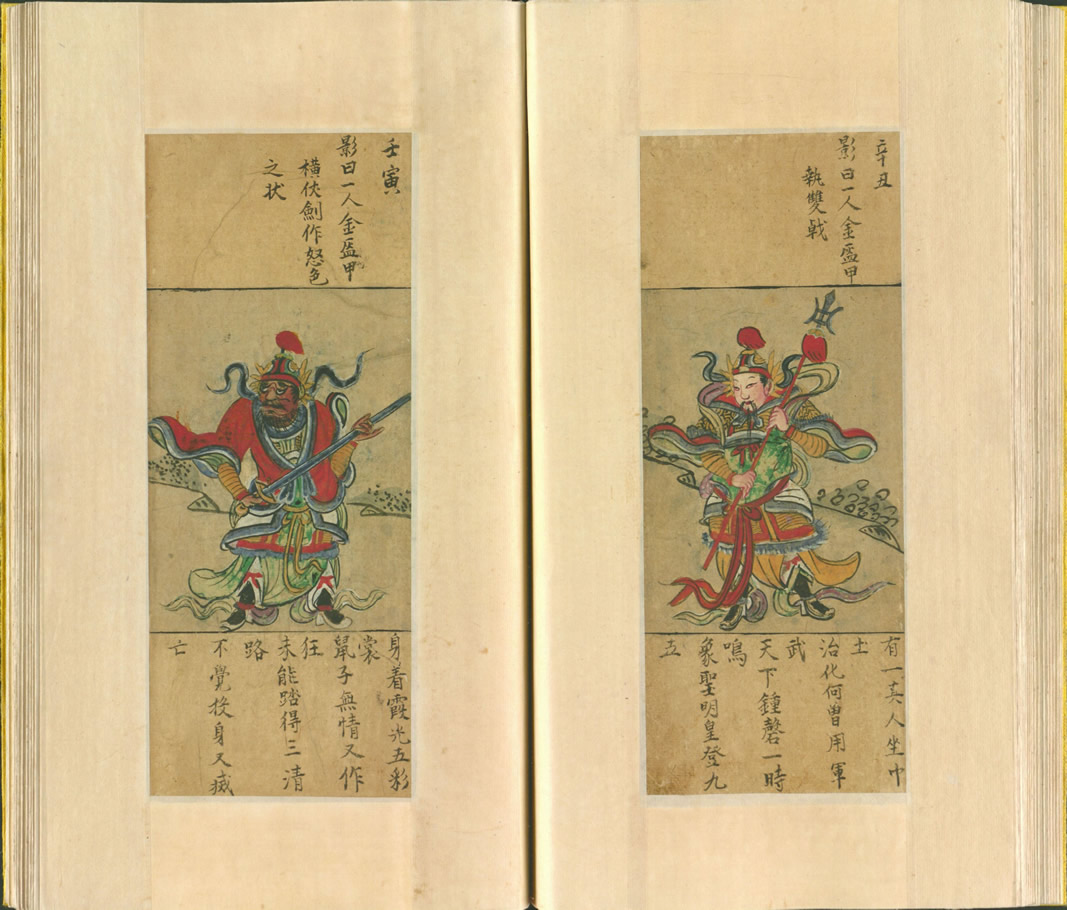 辛丑
影曰一人金盔甲
執雙戟
有一真人坐中
土
治化何曾用軍
武
天下鍾磬一時
鳴
象聖明皇登九
五
壬寅
影曰一人金盔甲
橫伏劍作怒色
之狀
身着霞光五彩
裳
鼠子無情又作
狂
未能踏得三清
路
不覺投身又滅
亡